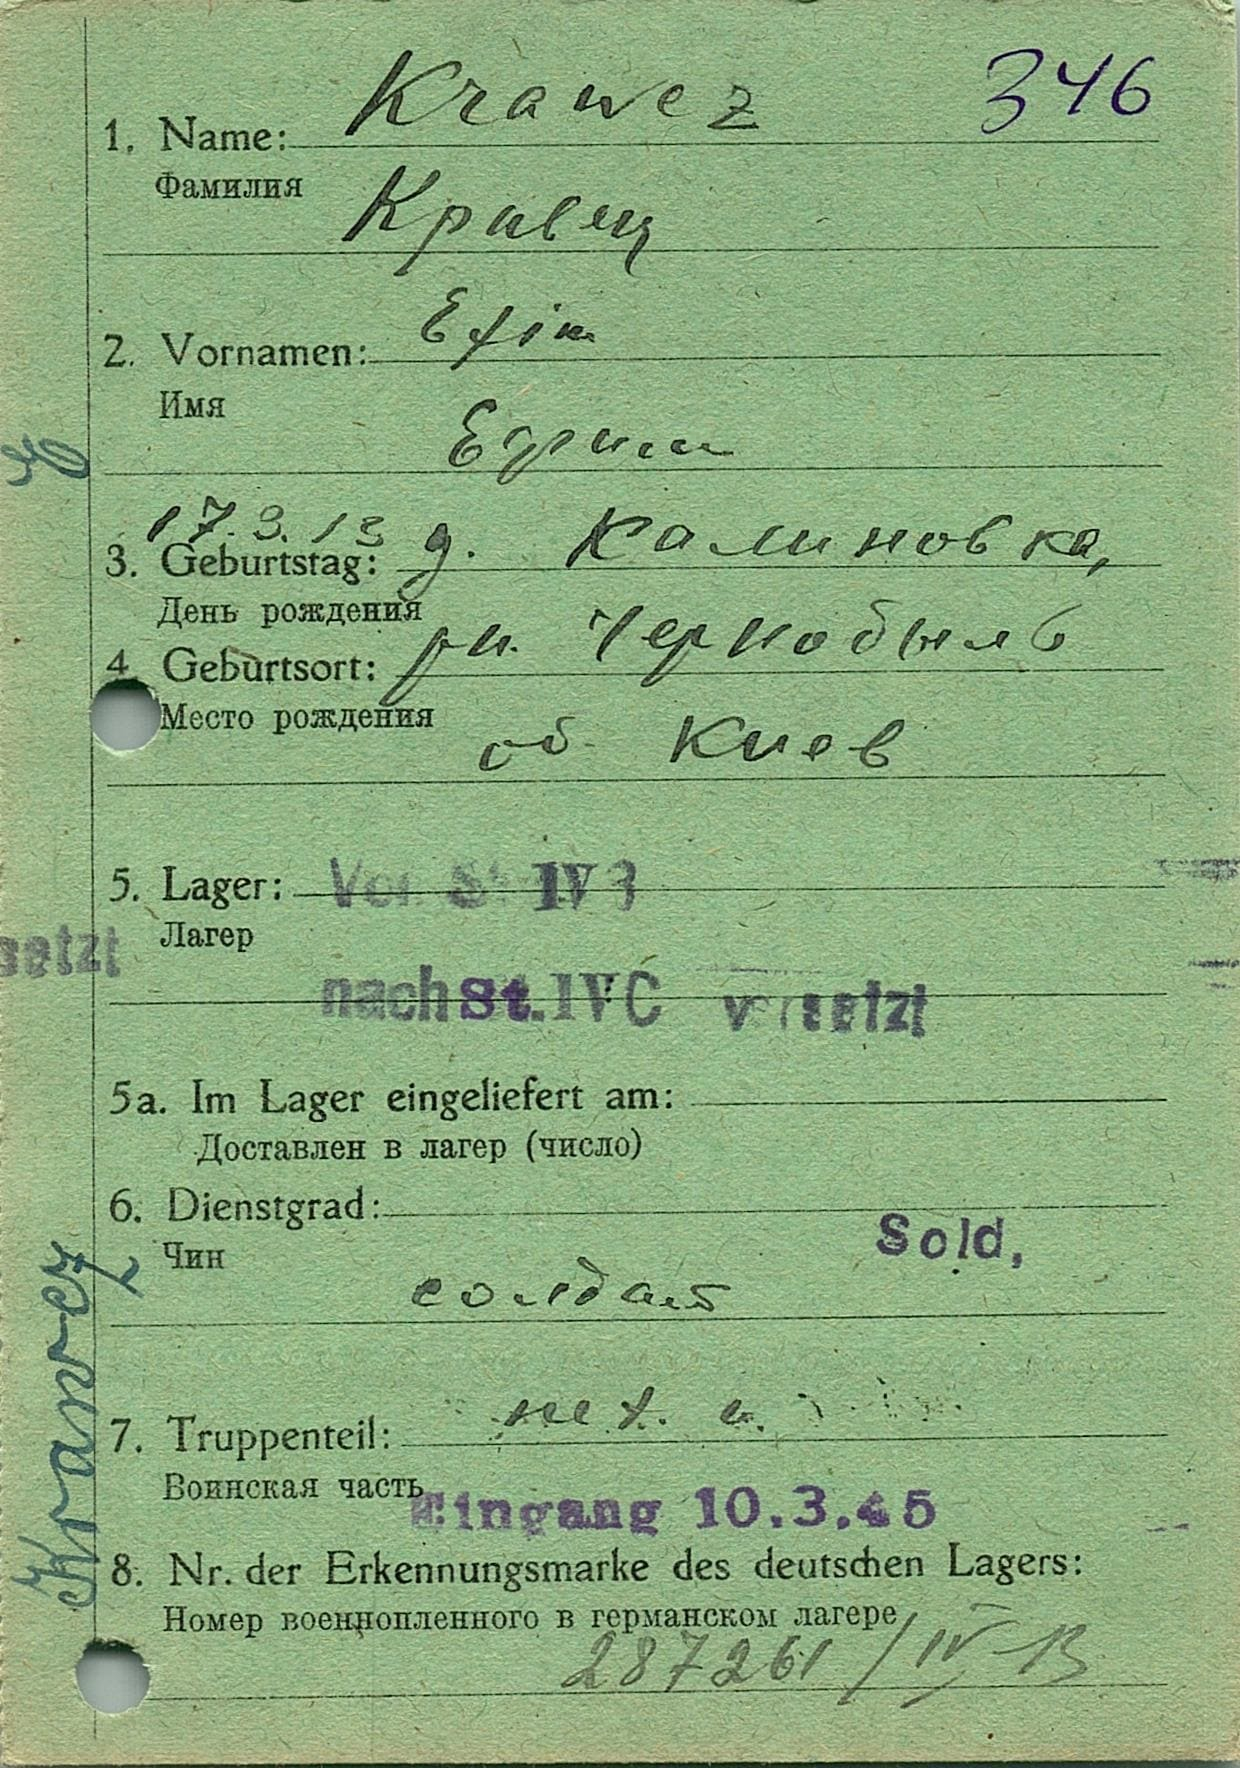 346
Krawez
1. Name:
Фамилия
Кравец
Efim
2. Vornamen:
Имя
Ефим
17.3.13 д. Калиновка,
3. Geburtstag:
День рождения
рн. Чернобыль
4 Geburtsort:
Место рождения
об. Киев
5. Lager: Von St. IV B
setzt
Лагер
nach St. IV C versetzt
5a. Im Lager eingeliefert am:
Доставлен в лагер (число)
6. Dienstgrad:
Sold,
Чин
солдат
7. Truppenteil:
Воинская часть
Eingang 10.3.45
8. Nr. der Erkennungsmarke des deutschen Lagers:
Номер военнопленного в германском лагере
287261 / IV B
Krawez